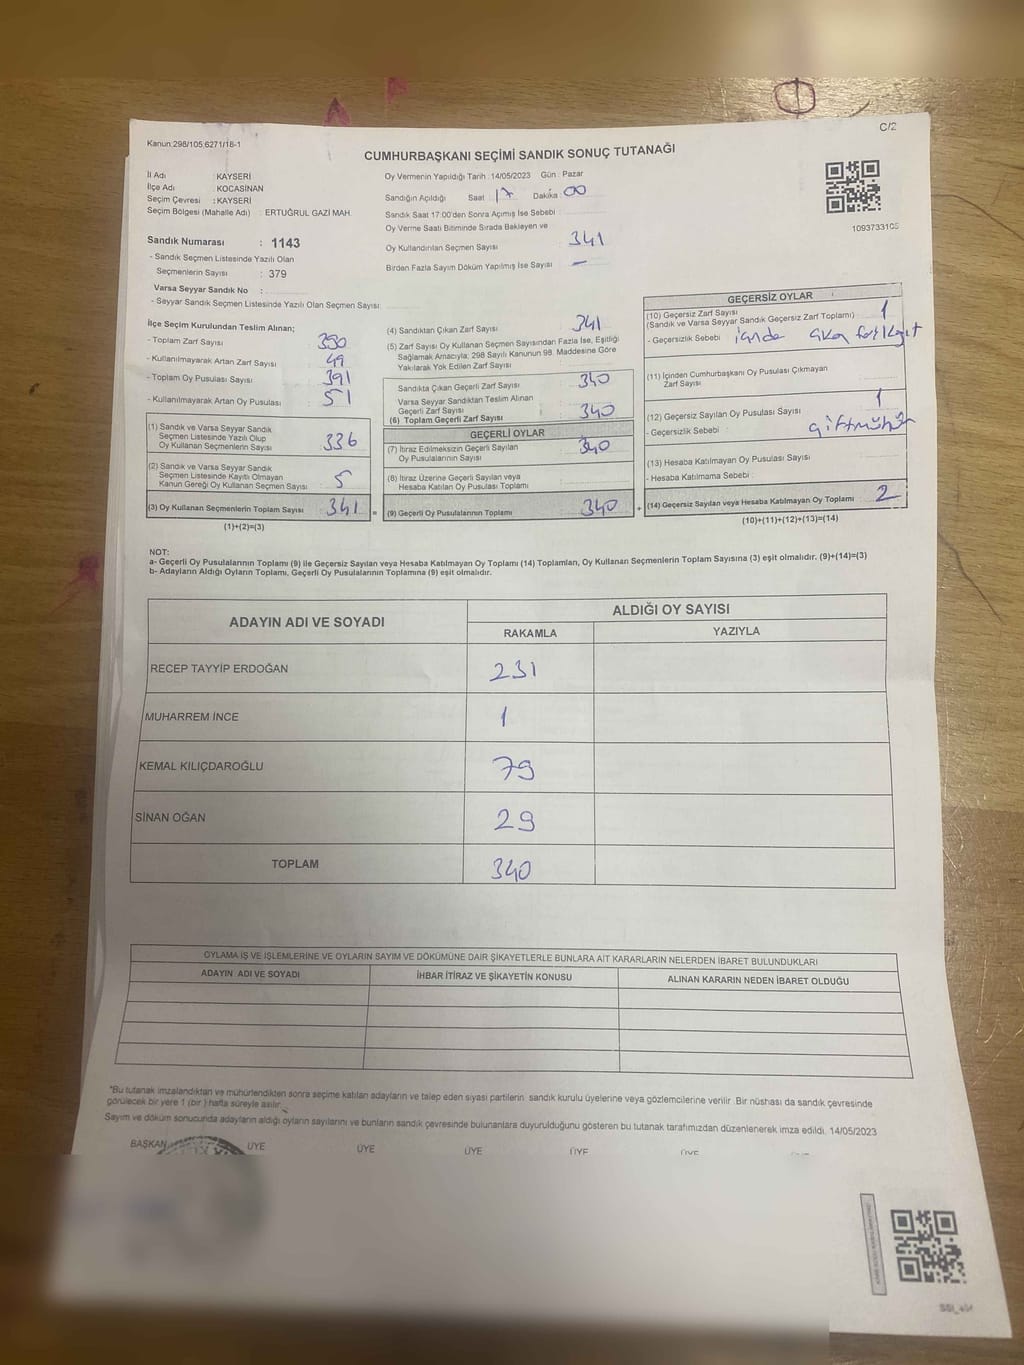 C/2
Kanun:298/105;6271/18-1
CUMHURBAŞKANI SEÇİMİ SANDIK SONUÇ TUTANAĞI
İl Adı : KAYSERİ
İlçe Adı : KOCASİNAN
Seçim Çevresi : KAYSERİ
Seçim Bölgesi (Mahalle Adı) : ERTUĞRUL GAZİ MAH.
Sandık Numarası : 1143
- Sandık Seçmen Listesinde Yazılı Olan
Seçmenlerin Sayısı : 379
Varsa Seyyar Sandık No :
- Seyyar Sandık Seçmen Listesinde Yazılı Olan Seçmen Sayısı:
Oy Vermenin Yapıldığı Tarih : 14/05/2023 Gün : Pazar
Sandığın Açıldığı Saat : 17 Dakika : 00
Sandık Saat 17:00'den Sonra Açımış İse Sebebi :
Oy Verme Saati Bitiminde Sırada Bekleyen ve
Oy Kullandırılan Seçmen Sayısı : 341
Birden Fazla Sayım Döküm Yapılmış İse Sayısı : -
1093733105
İlçe Seçim Kurulundan Teslim Alınan;
- Toplam Zarf Sayısı : 390
- Kullanılmayarak Artan Zarf Sayısı : 49
- Toplam Oy Pusulası Sayısı : 391
- Kullanılmayarak Artan Oy Pusulası : 51
(1) Sandık ve Varsa Seyyar Sandık
Seçmen Listesinde Yazılı Olup
Oy Kullanan Seçmenlerin Sayısı : 336
(2) Sandık ve Varsa Seyyar Sandık
Seçmen Listesinde Kayıtlı Olmayan
Kanun Gereği Oy Kullanan Seçmen Sayısı : 5
(3) Oy Kullanan Seçmenlerin Toplam Sayısı : 341
(1)+(2)=(3)
(4) Sandıktan Çıkan Zarf Sayısı : 341
(5) Zarf Sayısı Oy Kullanan Seçmen Sayısından Fazla İse, Eşitliği
Sağlamak Amacıyla; 298 Sayılı Kanunun 98. Maddesine Göre
Yakılarak Yok Edilen Zarf Sayısı :
Sandıkta Çıkan Geçerli Zarf Sayısı : 340
Varsa Seyyar Sandıktan Teslim Alınan
Geçerli Zarf Sayısı
(6) Toplam Geçerli Zarf Sayısı : 340
GEÇERLİ OYLAR
(7) İtiraz Edilmeksizin Geçerli Sayılan
Oy Pusulalarının Sayısı : 340
(8) İtiraz Üzerine Geçerli Sayılan veya
Hesaba Katılan Oy Pusulası Toplamı :
= (9) Geçerli Oy Pusulalarının Toplamı : 340 +
GEÇERSİZ OYLAR
(10) Geçersiz Zarf Sayısı
(Sandık ve Varsa Seyyar Sandık Geçersiz Zarf Toplamı) : 1
- Geçersizlik Sebebi :
(11) İçinden Cumhurbaşkanı Oy Pusulası Çıkmayan
Zarf Sayısı
(12) Geçersiz Sayılan Oy Pusulası Sayısı : 1
- Geçersizlik Sebebi : çift mühür
(13) Hesaba Katılmayan Oy Pusulası Sayısı
- Hesaba Katılmama Sebebi :
(14) Geçersiz Sayılan veya Hesaba Katılmayan Oy Toplamı : 2
(10)+(11)+(12)+(13)=(14)
NOT:
a- Geçerli Oy Pusulalarının Toplamı (9) ile Geçersiz Sayılan veya Hesaba Katılmayan Oy Toplamı (14) Toplamları, Oy Kullanan Seçmenlerin Toplam Sayısına (3) eşit olmalıdır. (9)+(14)=(3)
b- Adayların Aldığı Oyların Toplamı, Geçerli Oy Pusulalarının Toplamına (9) eşit olmalıdır.
ADAYIN ADI VE SOYADI
ALDIĞI OY SAYISI
RAKAMLA YAZIYLA
RECEP TAYYİP ERDOĞAN 231
MUHARREM İNCE 1
KEMAL KILIÇDAROĞLU 79
SİNAN OĞAN 29
TOPLAM 340
OYLAMA İŞ VE İŞLEMLERİNE VE OYLARIN SAYIM VE DÖKÜMÜNE DAİR ŞİKAYETLERLE BUNLARA AİT KARARLARIN NELERDEN İBARET BULUNDUKLARI
ADAYIN ADI VE SOYADI İHBAR İTİRAZ VE ŞİKAYETİN KONUSU ALINAN KARARIN NEDEN İBARET OLDUĞU
*Bu tutanak imzalandıktan ve mühürlendikten sonra seçime katılan adayların ve talep eden siyasi partilerin sandık kurulu üyelerine veya gözlemcilerine verilir. Bir nüshası da sandık çevresinde
görülecek bir yere 1 (bir ) hafta süreyle asılır.
Sayım ve döküm sonucunda adayların aldığı oyların sayılarını ve bunların sandık çevresinde bulunanlara duyurulduğunu gösteren bu tutanak tarafımızdan düzenlenerek imza edildi. 14/05/2023
BAŞKAN ÜYE ÜYE ÜYE ÜYE ÜYE